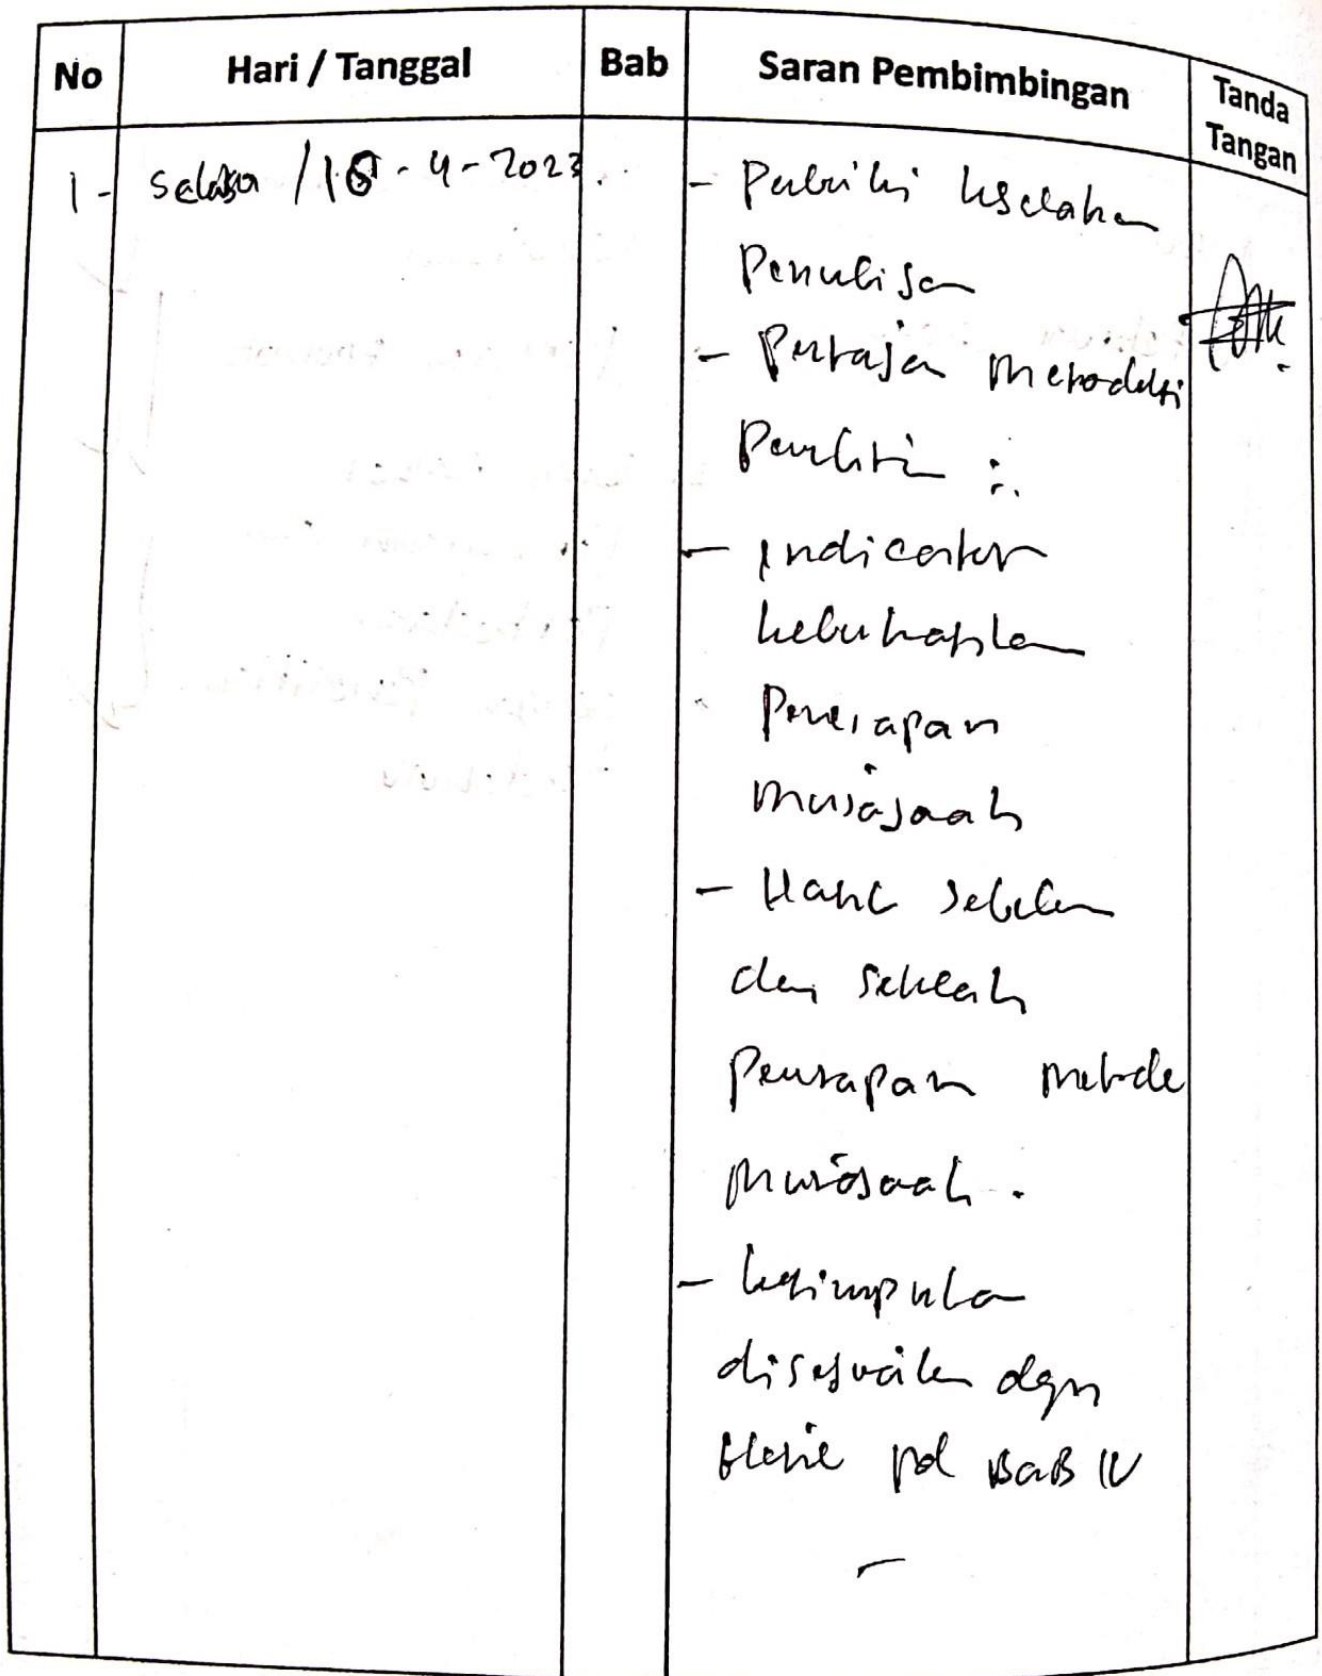 No Hari / Tanggal Bab Saran Pembimbingan Tanda
Tangan
1- Selasa / 18 - 4 - 2023 - Perbaiki kesalahan
Penulisan
- Pertajam metodologi
Penelitian :
- Indicator
keberhasilan
Penerapan
murajaah
- Hasil sebelum
dan setelah
Penerapan metode
murajaah .
- kesimpulan
disesuaikan dgn
pd BAB IV